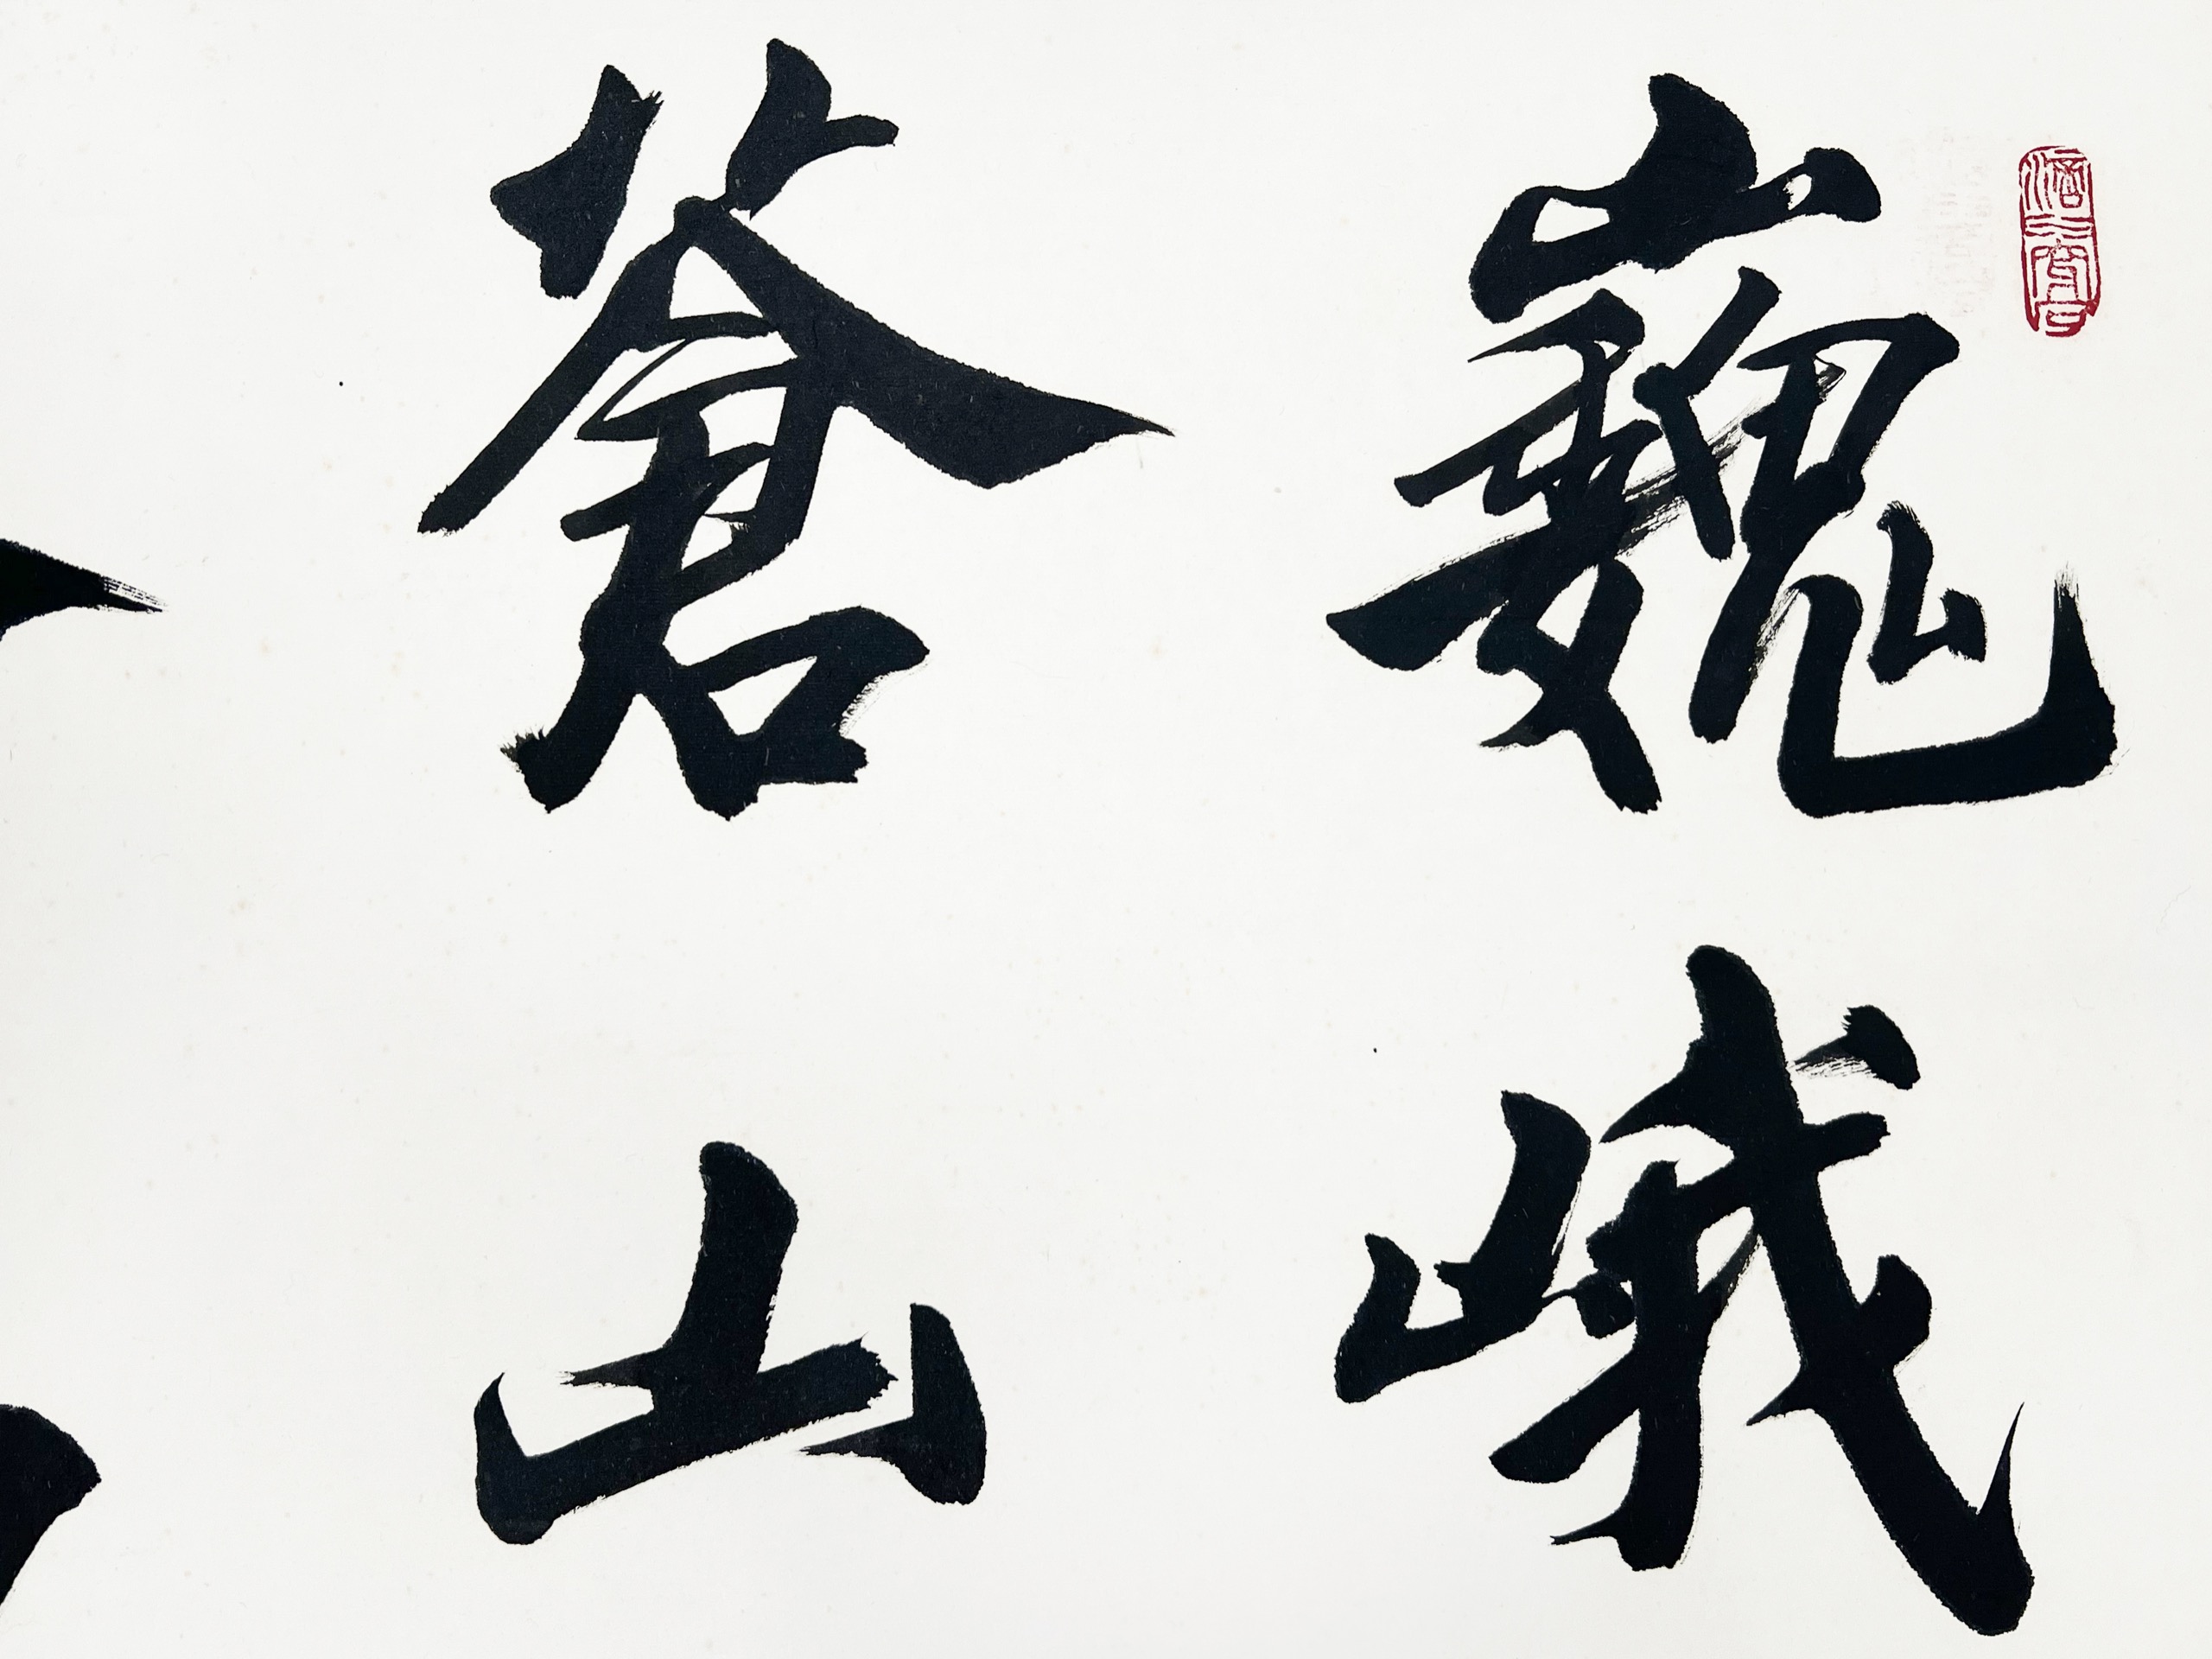 巍峨
蒼山